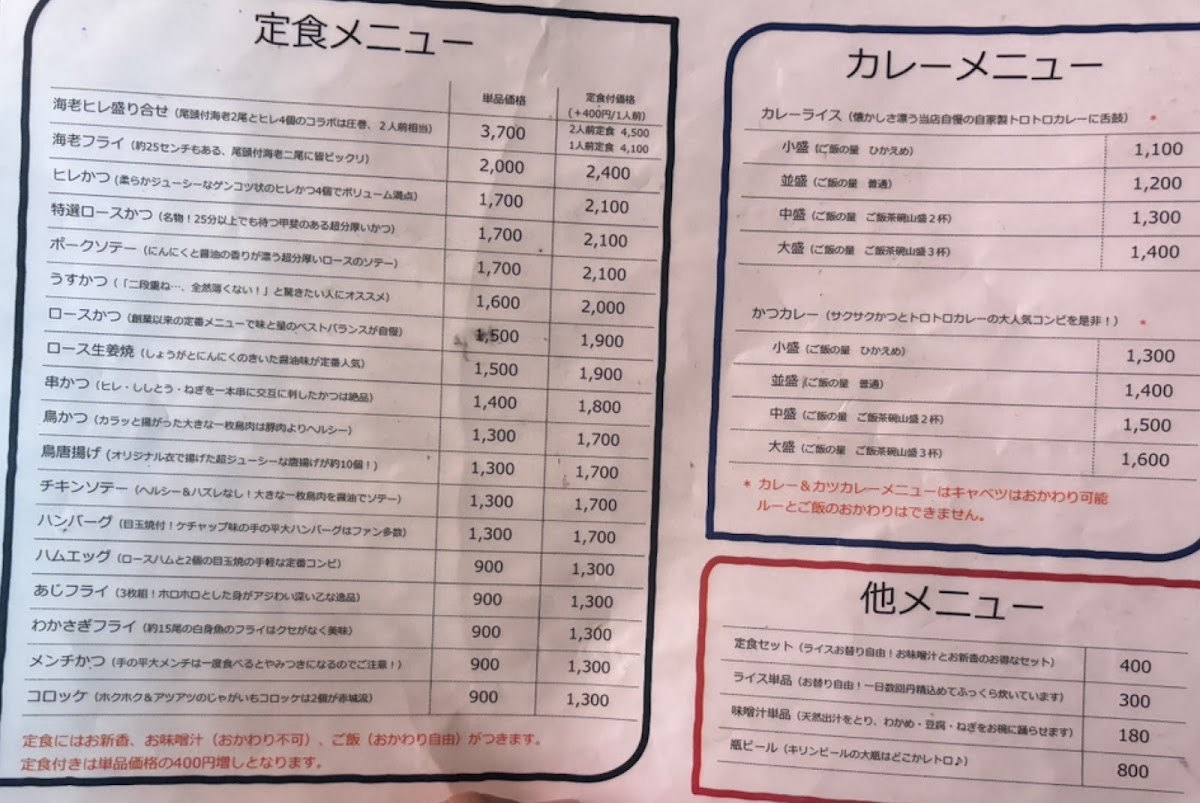 定食メニュー
単品価格 定食付価格
(+400円/1人前)
海老ヒレ盛り合せ(尾頭付海老2尾とヒレ4個のコラボは圧巻、2人前相当) 3,700 2人前定食 4,500
1人前定食 4,100
海老フライ(約25センチもある、尾頭付海老二尾に皆ビックリ) 2,000 2,400
ヒレかつ(柔らかジューシーなゲンコツ状のヒレかつ4個でボリューム満点) 1,700 2,100
特選ロースかつ(名物!25分以上でも待つ甲斐のある超分厚いかつ) 1,700 2,100
ポークソテー(にんにくと醤油の香りが漂う超分厚いロースのソテー) 1,700 2,100
うすかつ(「二段重ね…、全然薄くない!」と驚きたい人にオススメ) 1,600 2,000
ロースかつ(創業以来の定番メニューで味と量のベストバランスが自慢) 1,500 1,900
ロース生姜焼(しょうがとにんにくのきいた醤油味が定番人気) 1,500 1,900
串かつ(ヒレ・ししとう・ねぎを一本串に交互に刺したかつは絶品) 1,400 1,800
鳥かつ(カラッと揚がった大きな一枚鳥肉は豚肉よりヘルシー) 1,300 1,700
鳥唐揚げ(オリジナル衣で揚げた超ジューシーな唐揚げが約10個!) 1,300 1,700
チキンソテー(ヘルシー&ハズレなし!大きな一枚鳥肉を醤油でソテー) 1,300 1,700
ハンバーグ(目玉焼付!ケチャップ味の手の平大ハンバーグはファン多数) 1,300 1,700
ハムエッグ(ロースハムと2個の目玉焼の手軽な定番コンビ) 900 1,300
あじフライ(3枚組!ホロホロとした身がアジわい深い乙な逸品) 900 1,300
わかさぎフライ(約15尾の白身魚のフライはクセがなく美味) 900 1,300
メンチかつ(手の平大メンチは一度食べるとやみつきになるのでご注意!) 900 1,300
コロッケ(ホクホク&アツアツのじゃがいもコロッケは2個が赤城流) 900 1,300
定食にはお新香、お味噌汁(おかわり不可)、ご飯(おかわり自由)がつきます。
定食付きは単品価格の400円増しとなります。
カレーメニュー
カレーライス(懐かしさ漂う当店自慢の自家製トロトロカレーに舌鼓) *
小盛(ご飯の量 ひかえめ) 1,100
並盛(ご飯の量 普通) 1,200
中盛(ご飯の量 ご飯茶碗山盛2杯) 1,300
大盛(ご飯の量 ご飯茶碗山盛3杯) 1,400
かつカレー(サクサクかつとトロトロカレーの大人気コンビを是非!) *
小盛(ご飯の量 ひかえめ) 1,300
並盛(ご飯の量 普通) 1,400
中盛(ご飯の量 ご飯茶碗山盛2杯) 1,500
大盛(ご飯の量 ご飯茶碗山盛3杯) 1,600
* カレー&カツカレーメニューはキャベツはおかわり可能
ルーとご飯のおかわりはできません。
他メニュー
定食セット(ライスお替り自由!お味噌汁とお新香のお得なセット) 400
ライス単品(お替り自由!一日数回丹精込めてふっくら炊いています) 300
味噌汁単品(天然出汁をとり、わかめ・豆腐・ねぎをお椀に踊らせます) 180
瓶ビール(キリンビールの大瓶はどこかレトロ♪) 800